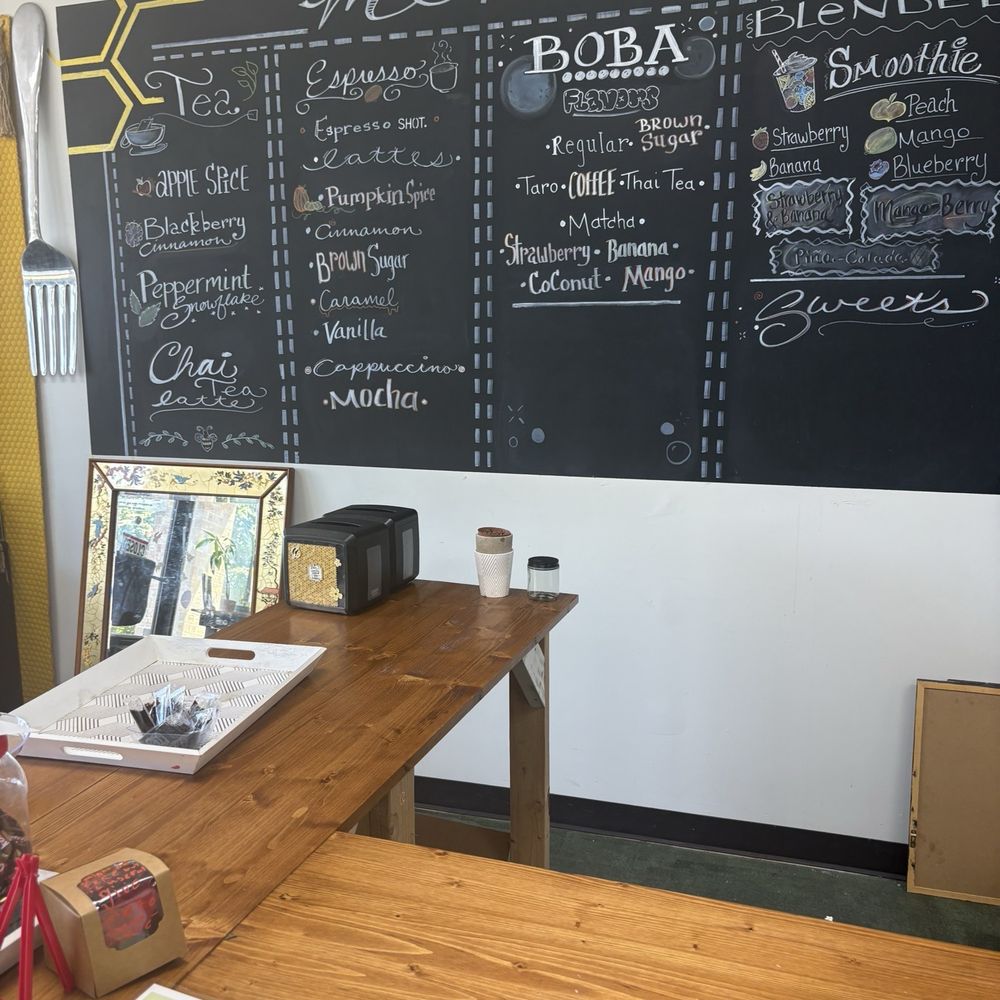 Tea
APPLE SPICE
Blackberry
Cinnamon
Peppermint
Snowflake
Chai
Tea
Latte
Espresso
Espresso SHOT.
Lattes
Pumpkin Spice
Cinnamon
Brown Sugar
Caramel
Vanilla
Cappuccino
Mocha
BOBA
FLAVORS
Regular BROWN
Sugar
Taro COFFEE Thai Tea
Matcha
Strawberry Banana
Coconut Mango
BLENDED
Smoothie
Peach
Strawberry Mango
Banana Blueberry
Strawberry
& Banana
Mango-Berry
Pina-Colada
Sweets